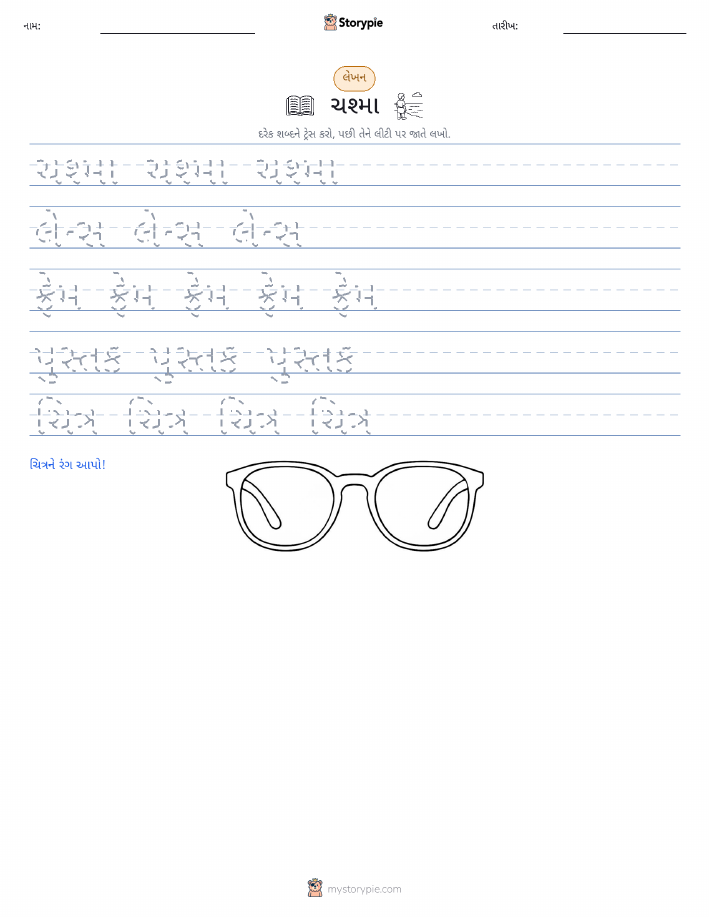 નામ: Storypie તારીખ:
લેખન
ચશ્મા
દરેક શબ્દને ટ્રેસ કરો, પછી તેને લીટી પર જાતે લખો.
ચશ્મા ચશ્મા ચશ્મા
લેન્સ લેન્સ લેન્સ
ફ્રેમ ફ્રેમ ફ્રેમ ફ્રેમ ફ્રેમ
પુસ્તક પુસ્તક પુસ્તક
ચિત્ર ચિત્ર ચિત્ર ચિત્ર
ચિત્રને રંગ આપો!
mystorypie.com